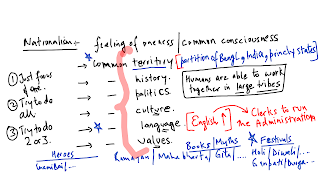 Nationalism:- feeling of oneness / common consciousness
* Common territory [partition of Bangl, India, princely states]
① Just focus → - history.
→ - politics.
② Try to do all → - culture.
→ - language
③ Try to do 2 or 3. → * - values.
Humans are able to work together in large tribes
[English ↑] → Clerks to run the Administration
Heroes
Books / Myths
* Festivals
Ramayan / Mahabharta / Gita / ...
Holi / Diwali / ...
Ganpati / Durga...